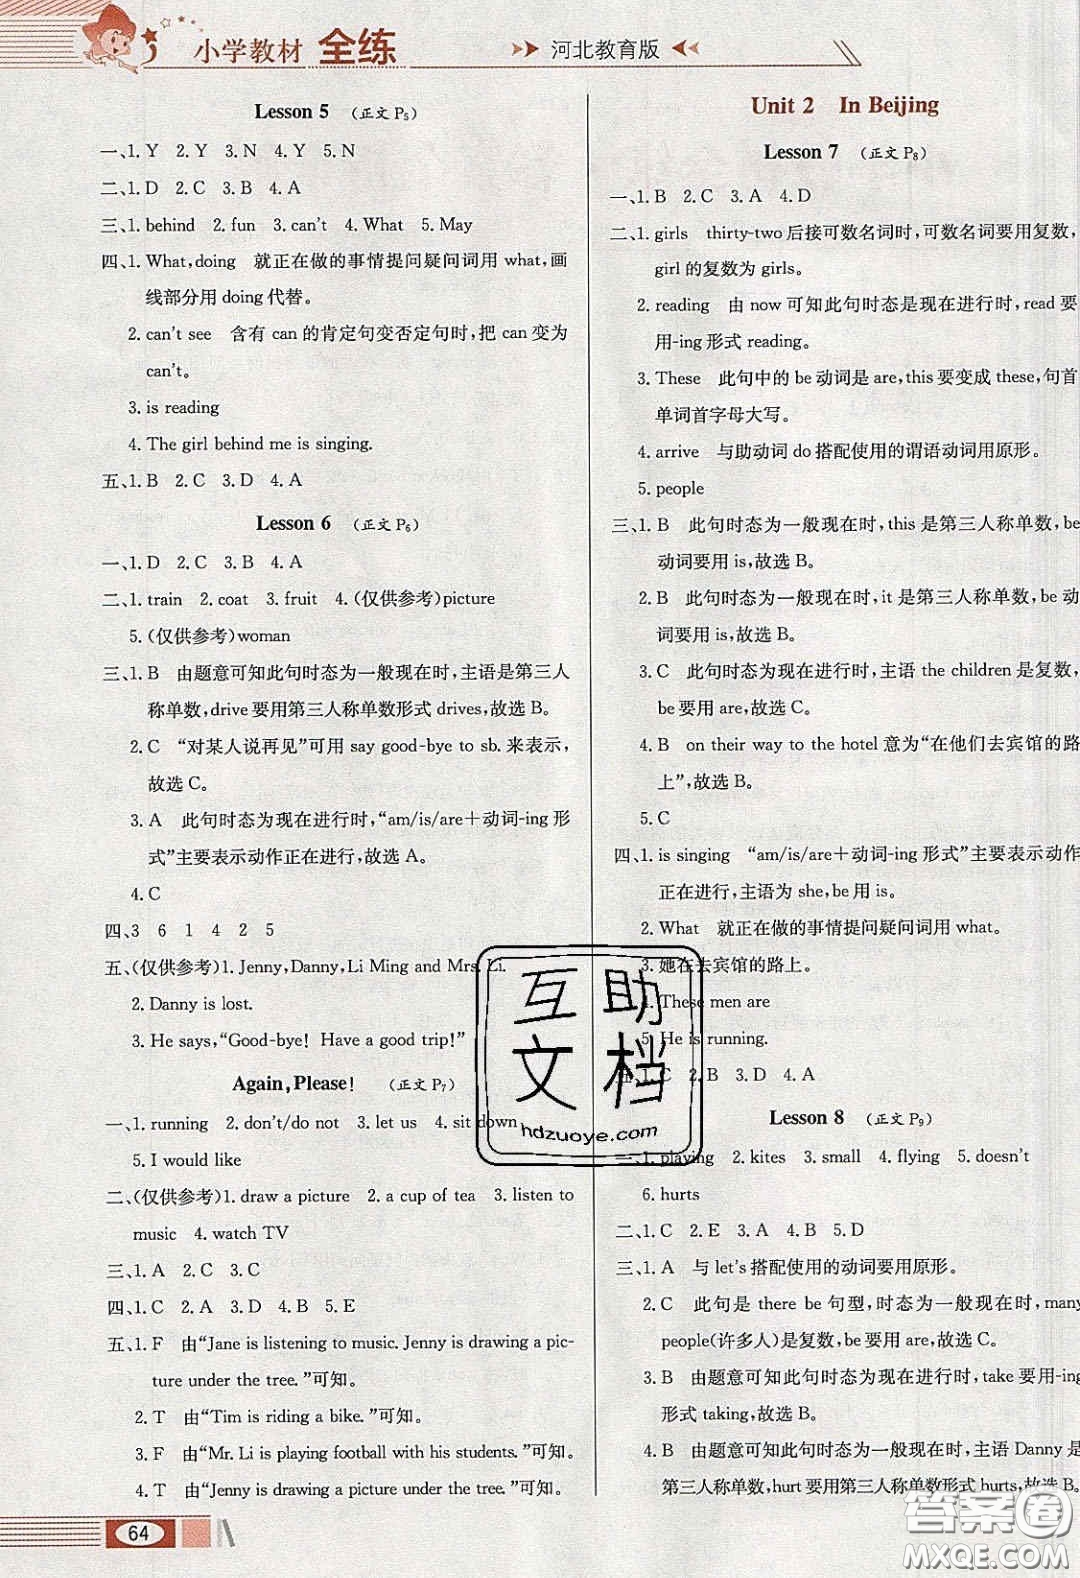 小学教材 全练
河北教育版
Lesson 5 (正文 P5)
一、1. Y 2. Y 3. N 4. Y 5. N
二、1. D 2. C 3. B 4. A
三、1. behind 2. fun 3. can't 4. What 5. May
四、1. What, doing 就正在做的事情提问疑问词用 what,画
线部分用 doing 代替。
2. can't see 含有 can 的肯定句变否定句时,把 can 变为
can't。
3. is reading
4. The girl behind me is singing.
五、1. B 2. C 3. D 4. A
Lesson 6 (正文 P6)
一、1. D 2. C 3. B 4. A
二、1. train 2. coat 3. fruit 4. (仅供参考)picture
5. (仅供参考)woman
三、1. B 由题意可知此句时态为一般现在时,主语是第三人
称单数,drive 要用第三人称单数形式 drives,故选 B。
2. C “对某人说再见”可用 say good-bye to sb. 来表示,
故选 C。
3. A 此句时态为现在进行时,“am/is/are+动词-ing 形
式”主要表示动作正在进行,故选 A。
4. C
四、3 6 1 4 2 5
五、(仅供参考)1. Jenny, Danny, Li Ming and Mrs. Li.
2. Danny is lost.
3. He says, “Good-bye! Have a good trip!”
Again, Please! (正文 P7)
一、1. running 2. don't/do not 3. let us 4. sit down
5. I would like
二、(仅供参考)1. draw a picture 2. a cup of tea 3. listen to
music 4. watch TV
三、1. A 2. C 3. C
四、1. C 2. A 3. D 4. B 5. E
五、1. F 由“Jane is listening to music. Jenny is drawing a pic-
ture under the tree.”可知。
2. T 由“Tim is riding a bike.”可知。
3. F 由“Mr. Li is playing football with his students.”可知。
4. T 由“Jenny is drawing a picture under the tree.”可知。
64
Unit 2 In Beijing
Lesson 7 (正文 P8)
一、1. B 2. C 3. A 4. D
二、1. girls thirty-two 后接可数名词时,可数名词要用复数,
girl 的复数为 girls。
2. reading 由 now 可知此句时态是现在进行时,read 要
用-ing 形式 reading。
3. These 此句中的 be 动词是 are,this 要变成 these,句首
单词首字母大写。
4. arrive 与助动词 do 搭配使用的谓语动词用原形。
5. people
三、1. B 此句时态为一般现在时,this 是第三人称单数,be
动词要用 is,故选 B。
2. B 此句时态为一般现在时,it 是第三人称单数,be 动
词要用 is,故选 B。
3. C 此句时态为现在进行时,主语 the children 是复数,
be 要用 are,故选 C。
4. B on their way to the hotel 意为“在他们去宾馆的路
上”,故选 B。
5. C
四、1. is singing “am/is/are+动词-ing 形式”主要表示动作
正在进行,主语为 she,be 用 is。
2. What 就正在做的事情提问疑问词用 what。
3. 她在去宾馆的路上。
4. These men are
5. He is running.
五、1. C 2. B 3. D 4. A
Lesson 8 (正文 P9)
一、1. playing 2. kites 3. small 4. flying 5. doesn't
6. hurts
二、1. C 2. E 3. A 4. B 5. D
三、1. A 与 let's 搭配使用的动词要用原形。
2. C 此句是 there be 句型,时态为一般现在时,many
people(许多人)是复数,be 要用 are,故选 C。
3. B 由题意可知此句时态为现在进行时,take 要用-ing
形式 taking,故选 B。
4. B 由题意可知此句时态为一般现在时,主语 Danny 是
第三人称单数,hurt 要用第三人称单数形式 hurts,故选 B。
互助
文档
hdzuoye.com
答案圈
MXQE.COM